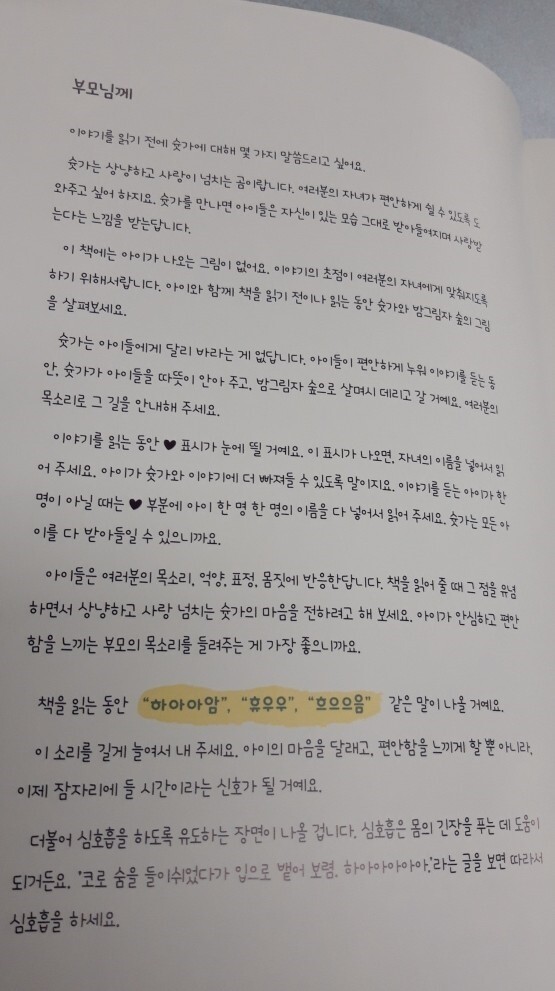 부모님께
이야기를 읽기 전에 숫가에 대해 몇 가지 말씀드리고 싶어요.
숫가는 상냥하고 사랑이 넘치는 곰이랍니다. 여러분의 자녀가 편안하게 쉴 수 있도록 도
와주고 싶어 하지요. 숫가를 만나면 아이들은 자신이 있는 모습 그대로 받아들여지며 사랑받
는다는 느낌을 받는답니다.
이 책에는 아이가 나오는 그림이 없어요. 이야기의 초점이 여러분의 자녀에게 맞춰지도록
하기 위해서랍니다. 아이와 함께 책을 읽기 전이나 읽는 동안 숫가와 밤그림자 숲의 그림
을 살펴보세요.
숫가는 아이들에게 달리 바라는 게 없답니다. 아이들이 편안하게 누워 이야기를 듣는 동
안, 숫가가 아이들을 따뜻이 안아 주고, 밤그림자 숲으로 살며시 데리고 갈 거예요. 여러분의
목소리로 그 길을 안내해 주세요.
이야기를 읽는 동안 ♥ 표시가 눈에 띌 거예요. 이 표시가 나오면, 자녀의 이름을 넣어서 읽
어 주세요. 아이가 숫가와 이야기에 더 빠져들 수 있도록 말이지요. 이야기를 듣는 아이가 한
명이 아닐 때는 ♥ 부분에 아이 한 명 한 명의 이름을 다 넣어서 읽어 주세요. 숫가는 모든 아
이를 다 받아들일 수 있으니까요.
아이들은 여러분의 목소리, 억양, 표정, 몸짓에 반응한답니다. 책을 읽어 줄 때 그 점을 유념
하면서 상냥하고 사랑 넘치는 숫가의 마음을 전하려고 해 보세요. 아이가 안심하고 편안
함을 느끼는 부모의 목소리를 들려주는 게 가장 좋으니까요.
책을 읽는 동안 “하아아암”, “휴우우”, “흐으으음” 같은 말이 나올 거예요.
이 소리를 길게 늘여서 내 주세요. 아이의 마음을 달래고, 편안함을 느끼게 할 뿐 아니라,
이제 잠자리에 들 시간이라는 신호가 될 거예요.
더불어 심호흡을 하도록 유도하는 장면이 나올 겁니다. 심호흡은 몸의 긴장을 푸는 데 도움이
되거든요. '코로 숨을 들이쉬었다가 입으로 뱉어 보렴. 하아아아아아.'라는 글을 보면 따라서
심호흡을 하세요.